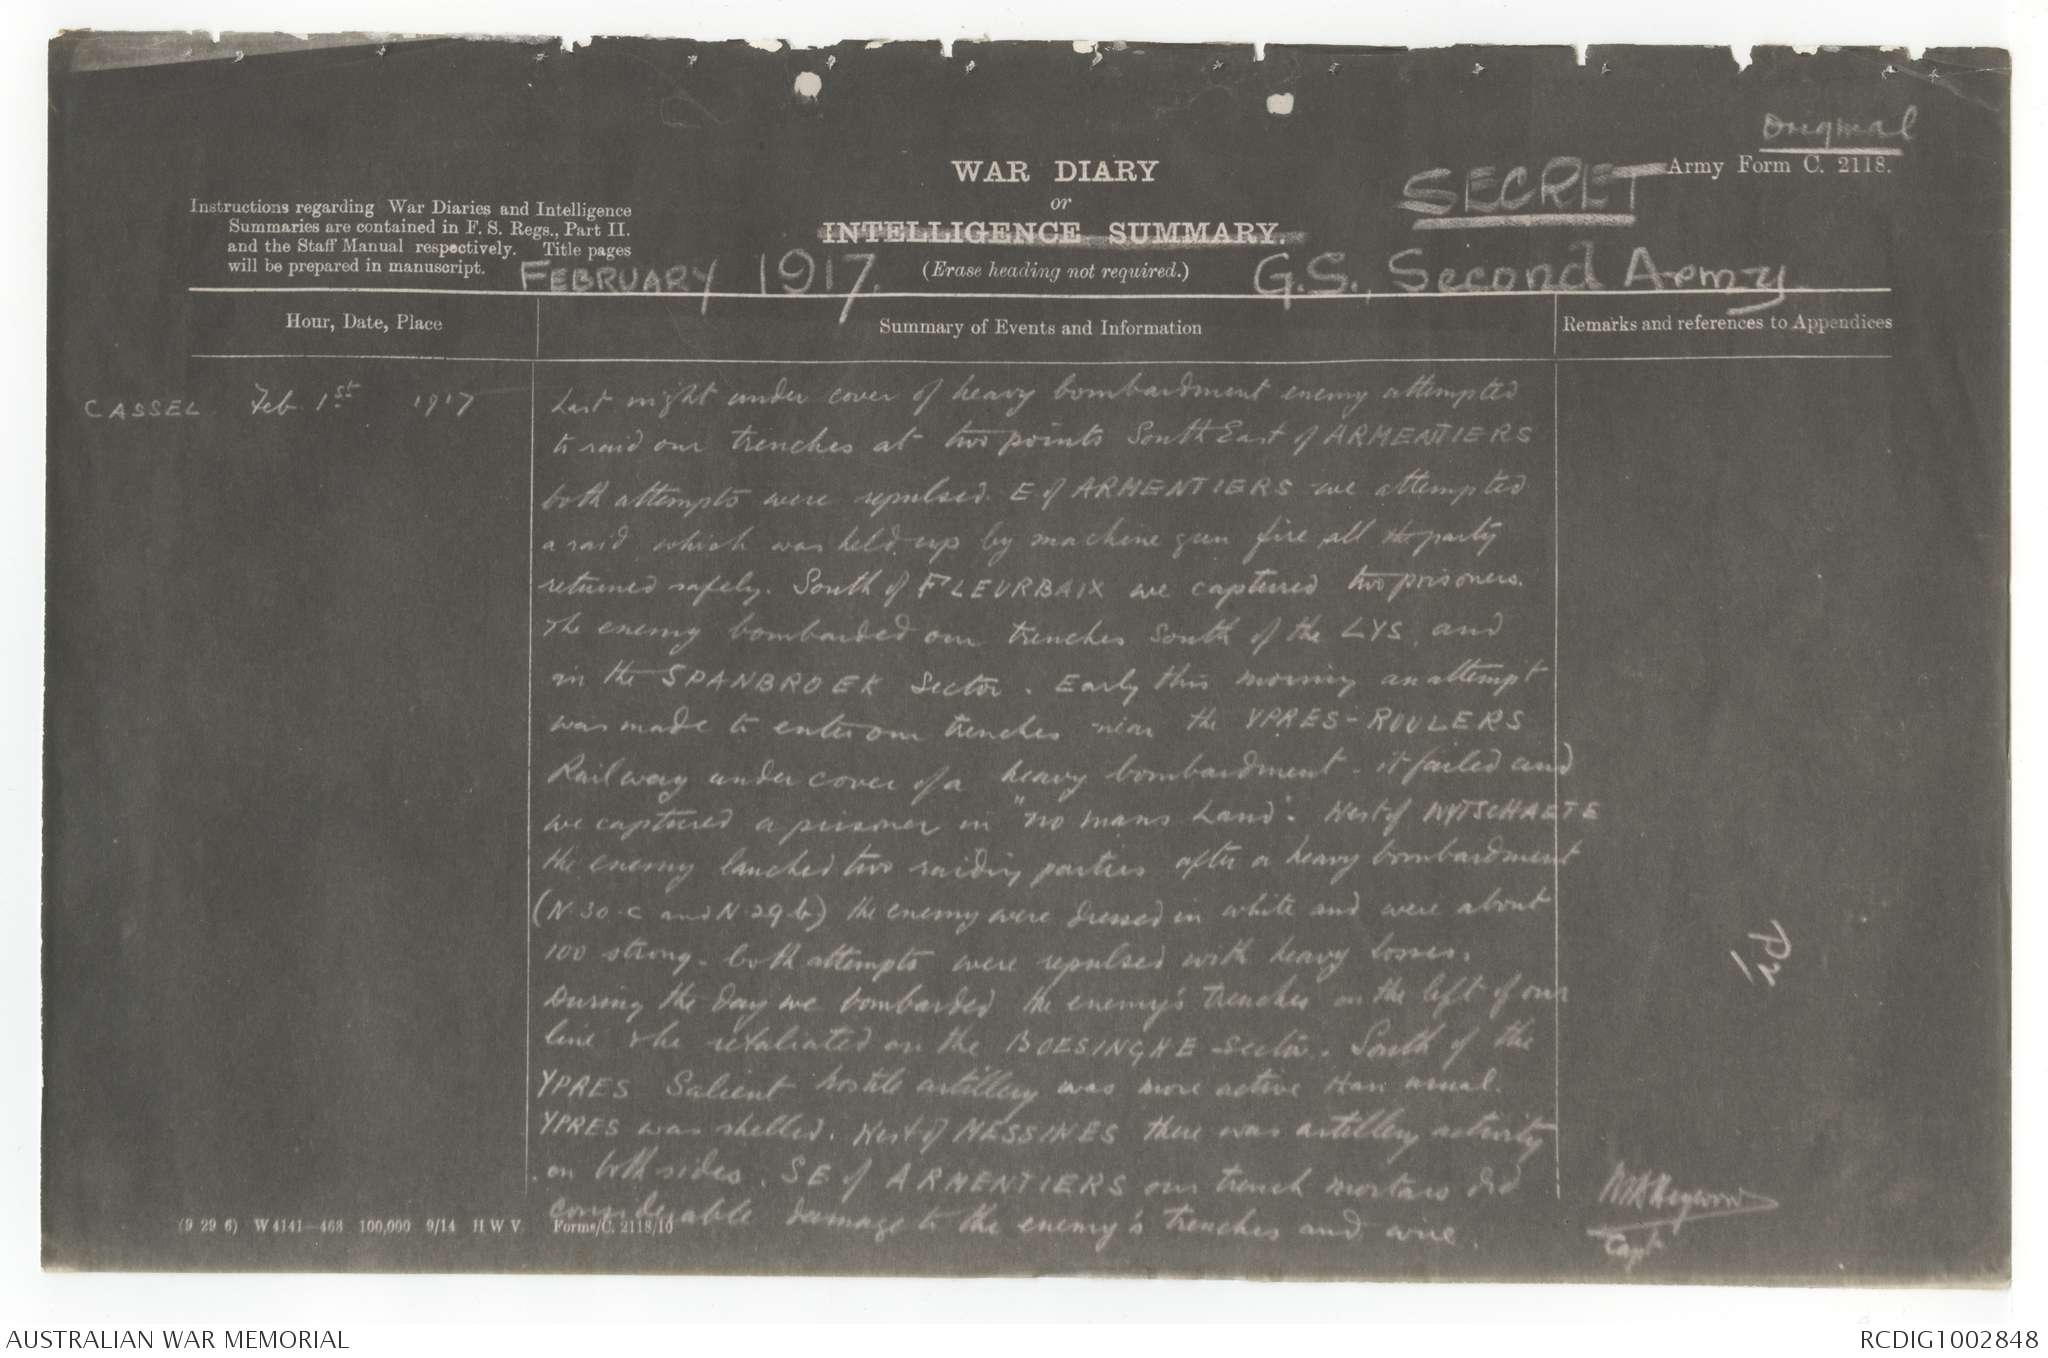 Original
Army Form C. 2118.
WAR DIARY
or
INTELLIGENCE SUMMARY.
(Erase heading not required.)
SECRET
Instructions regarding War Diaries and Intelligence
Summaries are contained in F. S. Regs., Part II.
and the Staff Manual respectively. Title pages
will be prepared in manuscript.
FEBRUARY 1917.
G.S., Second Army.
Hour, Date, Place
Summary of Events and Information
Remarks and references to Appendices
CASSEL Feb. 1st 1917
Last night under cover of heavy bombardment enemy attempted
to raid our trenches at two points South East of ARMENTIERS
both attempts were repulsed. E of ARMENTIERS we attempted
a raid which was held up by machine gun fire all the party
returned safely. South of FLEURBAIX we captured two prisoners.
The enemy bombarded our trenches South of the LYS, and
in the SPANBROEK Sector. Early this morning an attempt
was made to enter our trenches near the YPRES-ROULERS
Railway under cover of a heavy bombardment - it failed and
we captured a prisoner in "no mans Land". West of WYTSCHAETE
the enemy lanched two raiding parties after a heavy bombardment
(N.30.c and N.29.b) the enemy were dressed in white and were about
100 strong - both attempts were repulsed with heavy losses.
During the day we bombarded the enemy's trenches on the left of our
line & he retaliated on the BOESINGHE Sector. South of the
YPRES Salient hostile artillery was more active than usual.
YPRES was shelled. West of MESSINES there was artillery activity
on both sides. SE of ARMENTIERS our trench mortars did
considerable damage to the enemy's trenches and wire.
Capt
(9 29 6) W 4141—463 100,000 9/14 H W V Forms/C. 2118/10
AUSTRALIAN WAR MEMORIAL
RCDIG1002848